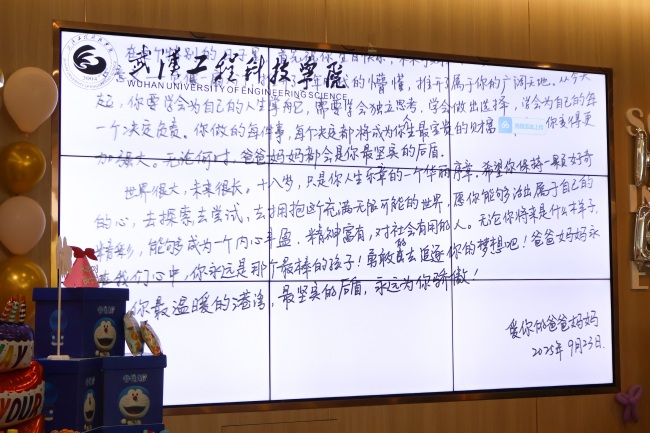 武汉工程科技学院
WUHAN UNIVERSITY OF ENGINEERING SCIENCE
的懵懂，推开了属于你的广阔天地。从今天
起，你要学会为自己的人生掌舵，需要学会独立思考，学会做出选择，学会为自己的每
一个决定负责。你做的每件事，每个决定都将成为你人生最宝贵的财富 你变得更
加强大。无论何时，爸爸妈妈都会是你最坚实的后盾。
世界很大，未来很长。十八岁，只是你人生乐章的一个华丽序章。希望你保持一颗好奇
的心，去探索去尝试，去拥抱这个充满无限可能的世界，愿你能够活出属于自己的
精彩，能够成为一个内心丰盈、精神富有，对社会有用的人。无论你将来是什么样子，
在我们心中，你永远是那个最棒的孩子！勇敢的去追逐你的梦想吧！爸爸妈妈永
你最温暖的港湾，最坚实的后盾，永远为你骄傲！
爱你的爸爸妈妈
2025年9月23日.
YOUR